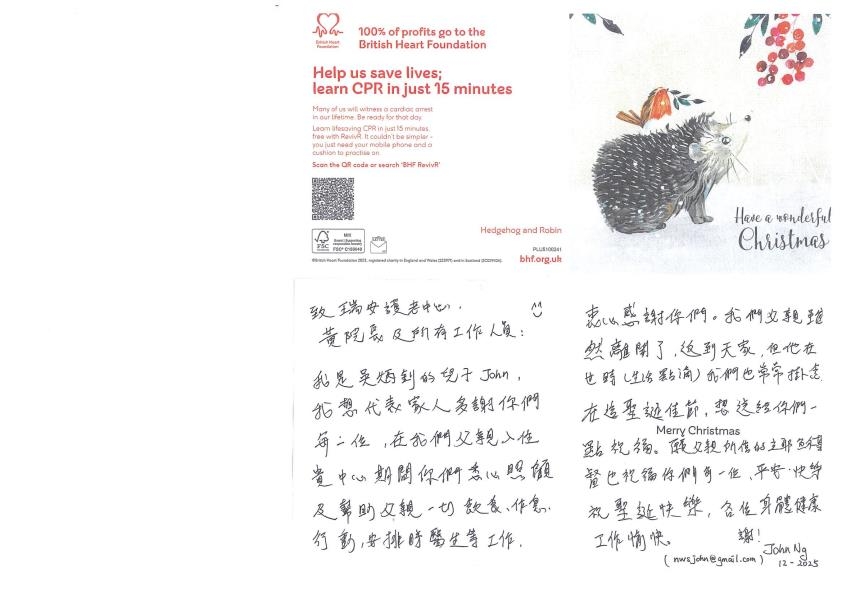 British Heart
Foundation
100% of profits go to the
British Heart Foundation
Help us save lives;
learn CPR in just 15 minutes
Many of us will witness a cardiac arrest
in our lifetime. Be ready for that day.
Learn lifesaving CPR in just 15 minutes,
free with RevivR. It couldn't be simpler -
you just need your mobile phone and a
cushion to practise on.
Scan the QR code or search 'BHF RevivR'
Hedgehog and Robin
FSC
MIX
PLUS100241
bhf.org.uk
Have a wonderful
Christmas
致 瑞安護老中心.
黃院長及所有工作人員:
我是吳炳到的兒子 John,
我想代表家人多謝你們
每一位,在我們父親入住
貴中心期間你們悉心照顧
及幫助父親一切飲食、作息、
行動,安排睇醫生等工作.
衷心感謝你們。我們父親雖
然離開了,返到天家,但他在
世時(生活點滴)我們也常常掛念.
在這聖誕佳節,想送給你們一
Merry Christmas
點祝福。願父親所信的主耶穌基
督也祝福你們每一位,平安、快樂
祝聖誕快樂,各位身體健康
工作愉快。 謝!
John Ng
(nwsjohn@gmail.com) 12-2025